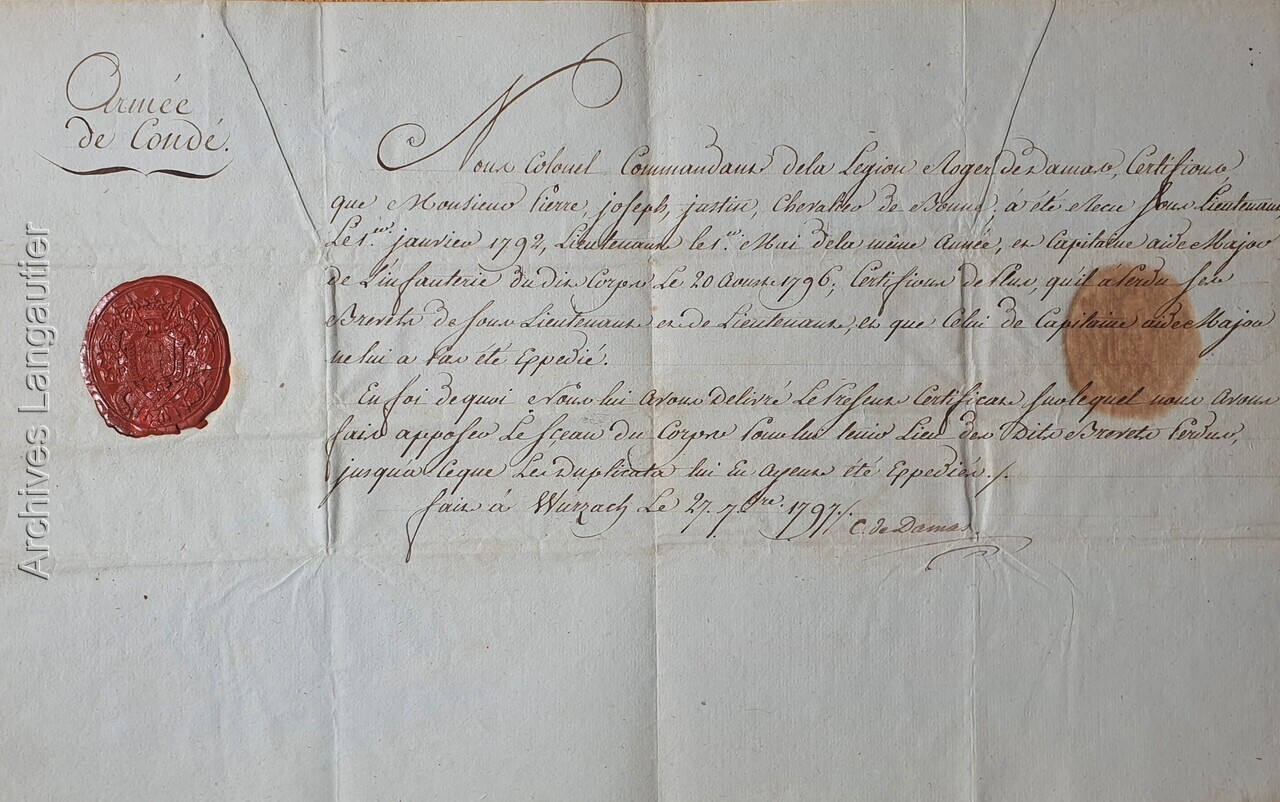 Armée
de Condé.
Nous Colonel Commandant dela Légion Roger de Damas, Certifions
que Monsieur Pierre, joseph, justin, Chevalier de Bonne, à été Recu sous Lieutenant
Le 1.er janvier 1792, Lieutenant le 1.er Mai dela même Année, et Capitaine aide Major
de L'infanterie du dit Corps Le 20 Aoust 1796; Certifions de Plus, qu'il a Perdu ses
Brevets de sous Lieutenant et de Lieutenant, et que Celui de Capitaine aide Major
ne lui a Pas été Expedié.
En foi de quoi Nous lui Avons Delivré Le Present Certificat sur lequel nous Avons
fait apposer Le sceau du Corps Pour lui tenir Lieu des Dits Brevets Perdus,
jusqua Ceque Les Duplicata lui En Ayent été Expediés./.
fait à Wurzach Le 27. 7.bre. 1797./.
C. de Damas.
Archives Langautier